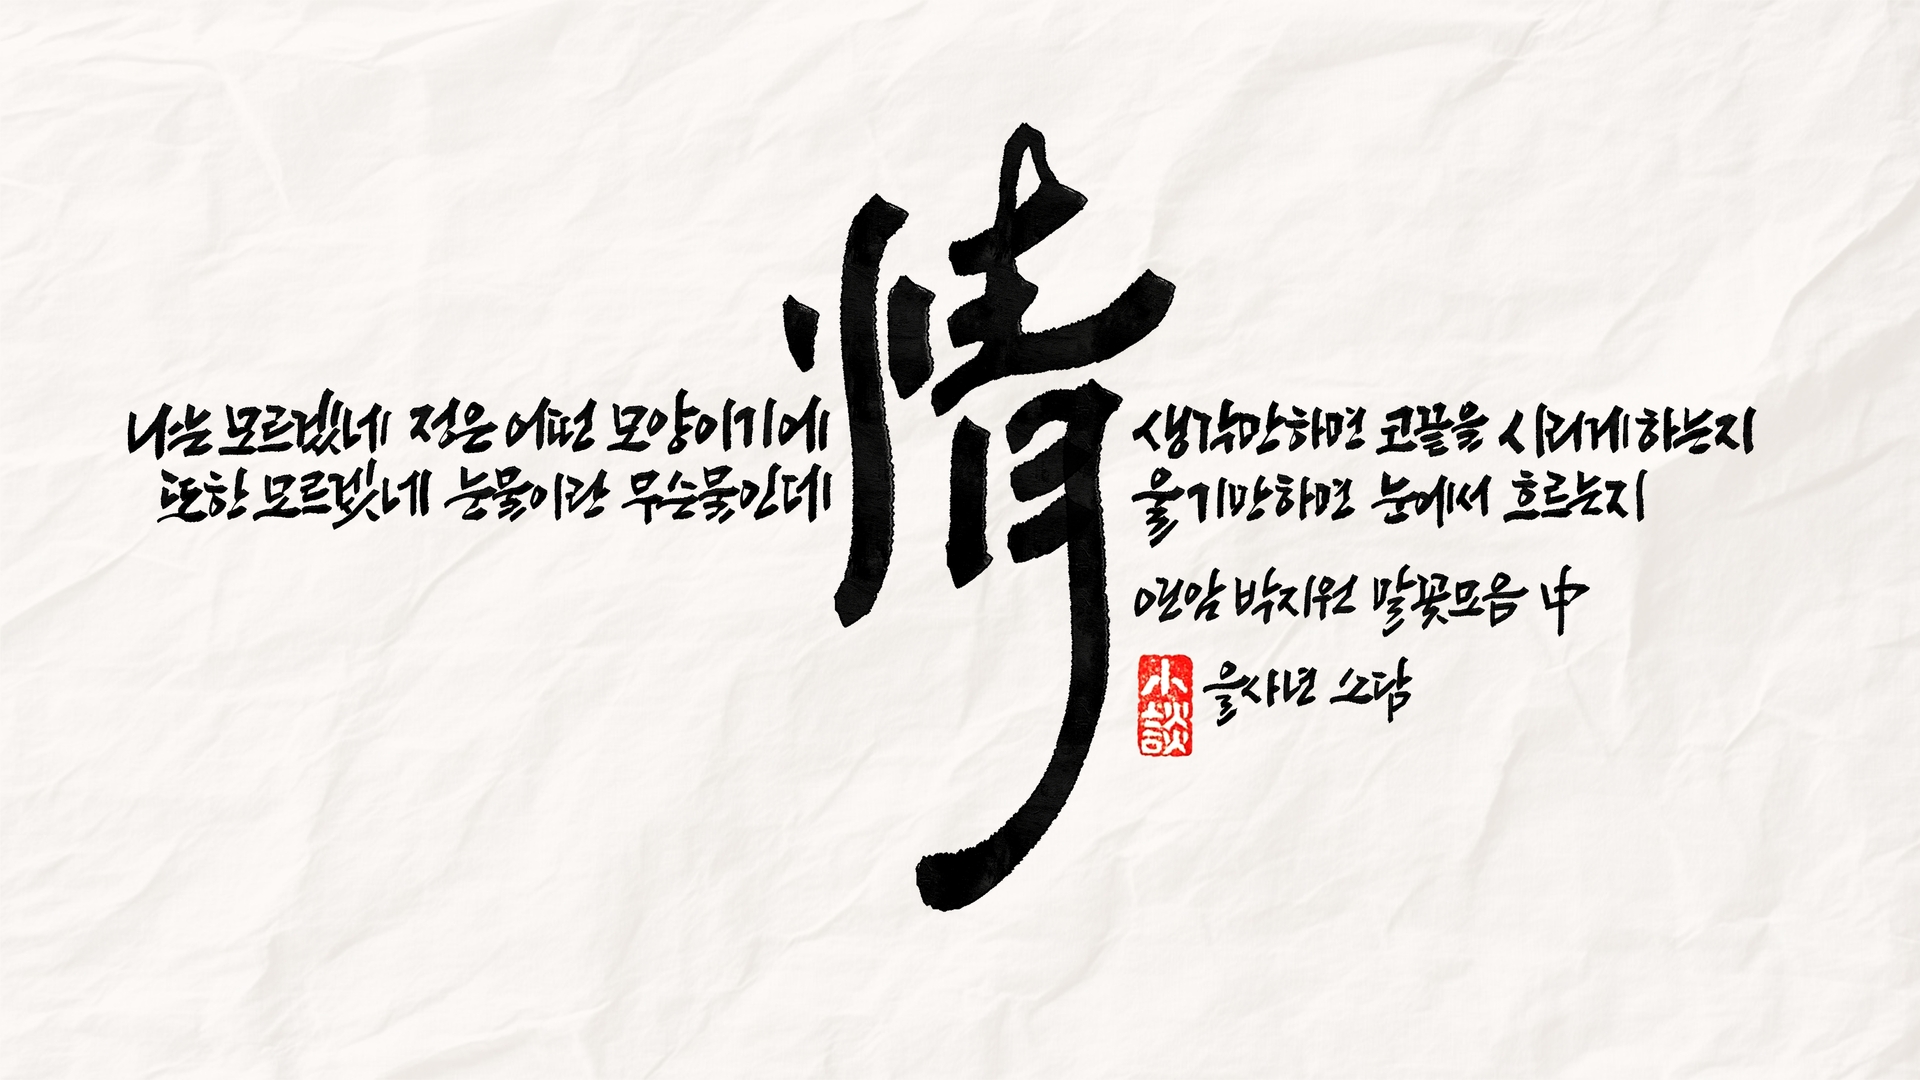 情
나는 모르겠네 정은 어떤 모양이기에 생각만하면 코끝을 시리게하는지
또한 모르겠네 눈물이란 무슨물인데 울기만하면 눈에서 흐르는지
연암 박지원 말꽃모음 中
을사년 소담
小談